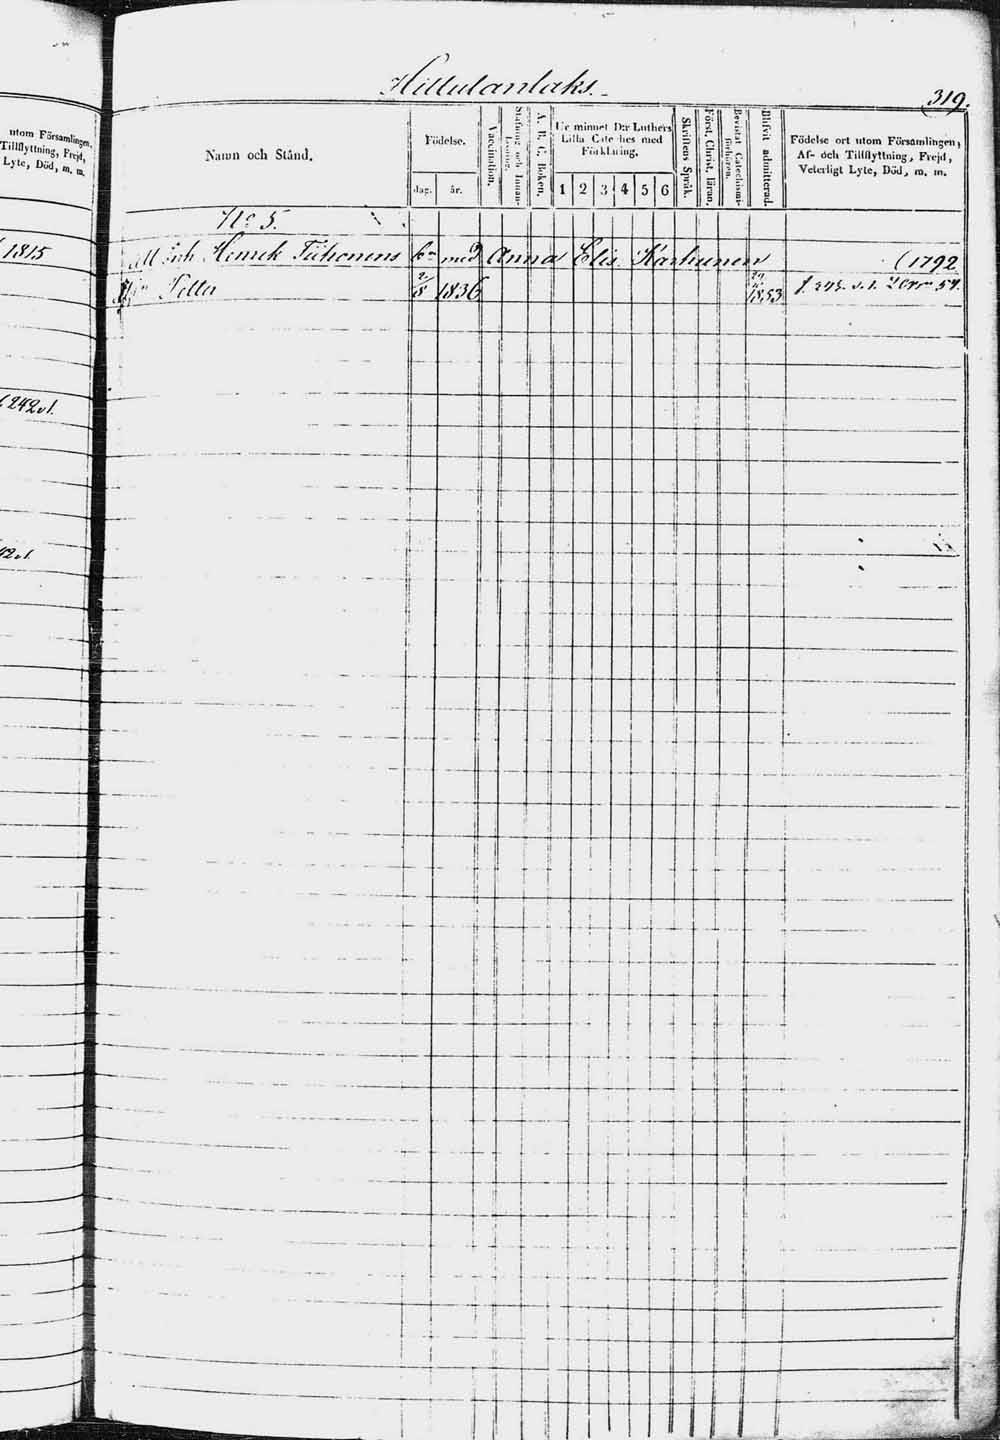 utom Församlingen,
Tillflyttning, Frejd,
Lyte, Död, m. m.
1815
242 v.l.
Hillulanlaks.
319.
Namn och Stånd.
Födelse.
dag.
år.
Vaccination.
Stafning och Innan-
läsning.
A. B. C. Boken.
Ur minnet D:r Luthers
Lilla Cateches med
Förklaring.
1 2 3 4 5 6
Skriftens Språk.
Först. Christ. läran.
Bevistat Catechismi-
förhören.
Blifvit admitterad.
Födelse ort utom Församlingen,
Af- och Tillflyttning, Frejd,
Veterligt Lyte, Död, m. m.
No 5.
Henrik Tiihonens med Anna Elis. Karhunen (1792
2/8 1836 1853 f. v.l. 57.